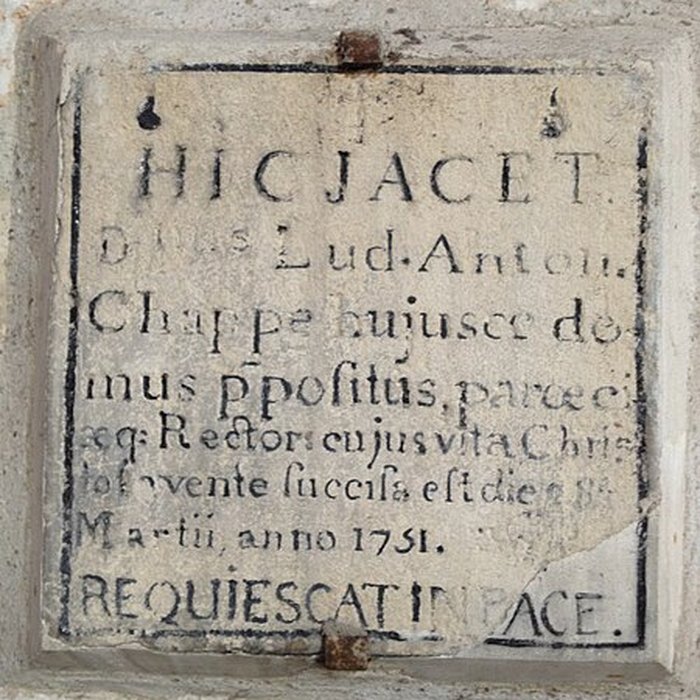 HIC JACET.
Lud. Anton.
Chappe hujusce do-
mus p̄positus, parœci-
æq: Rector: cujus vita Chris
vente succisa est die
Martii, anno 1751.
REQUIESCAT IN PACE.